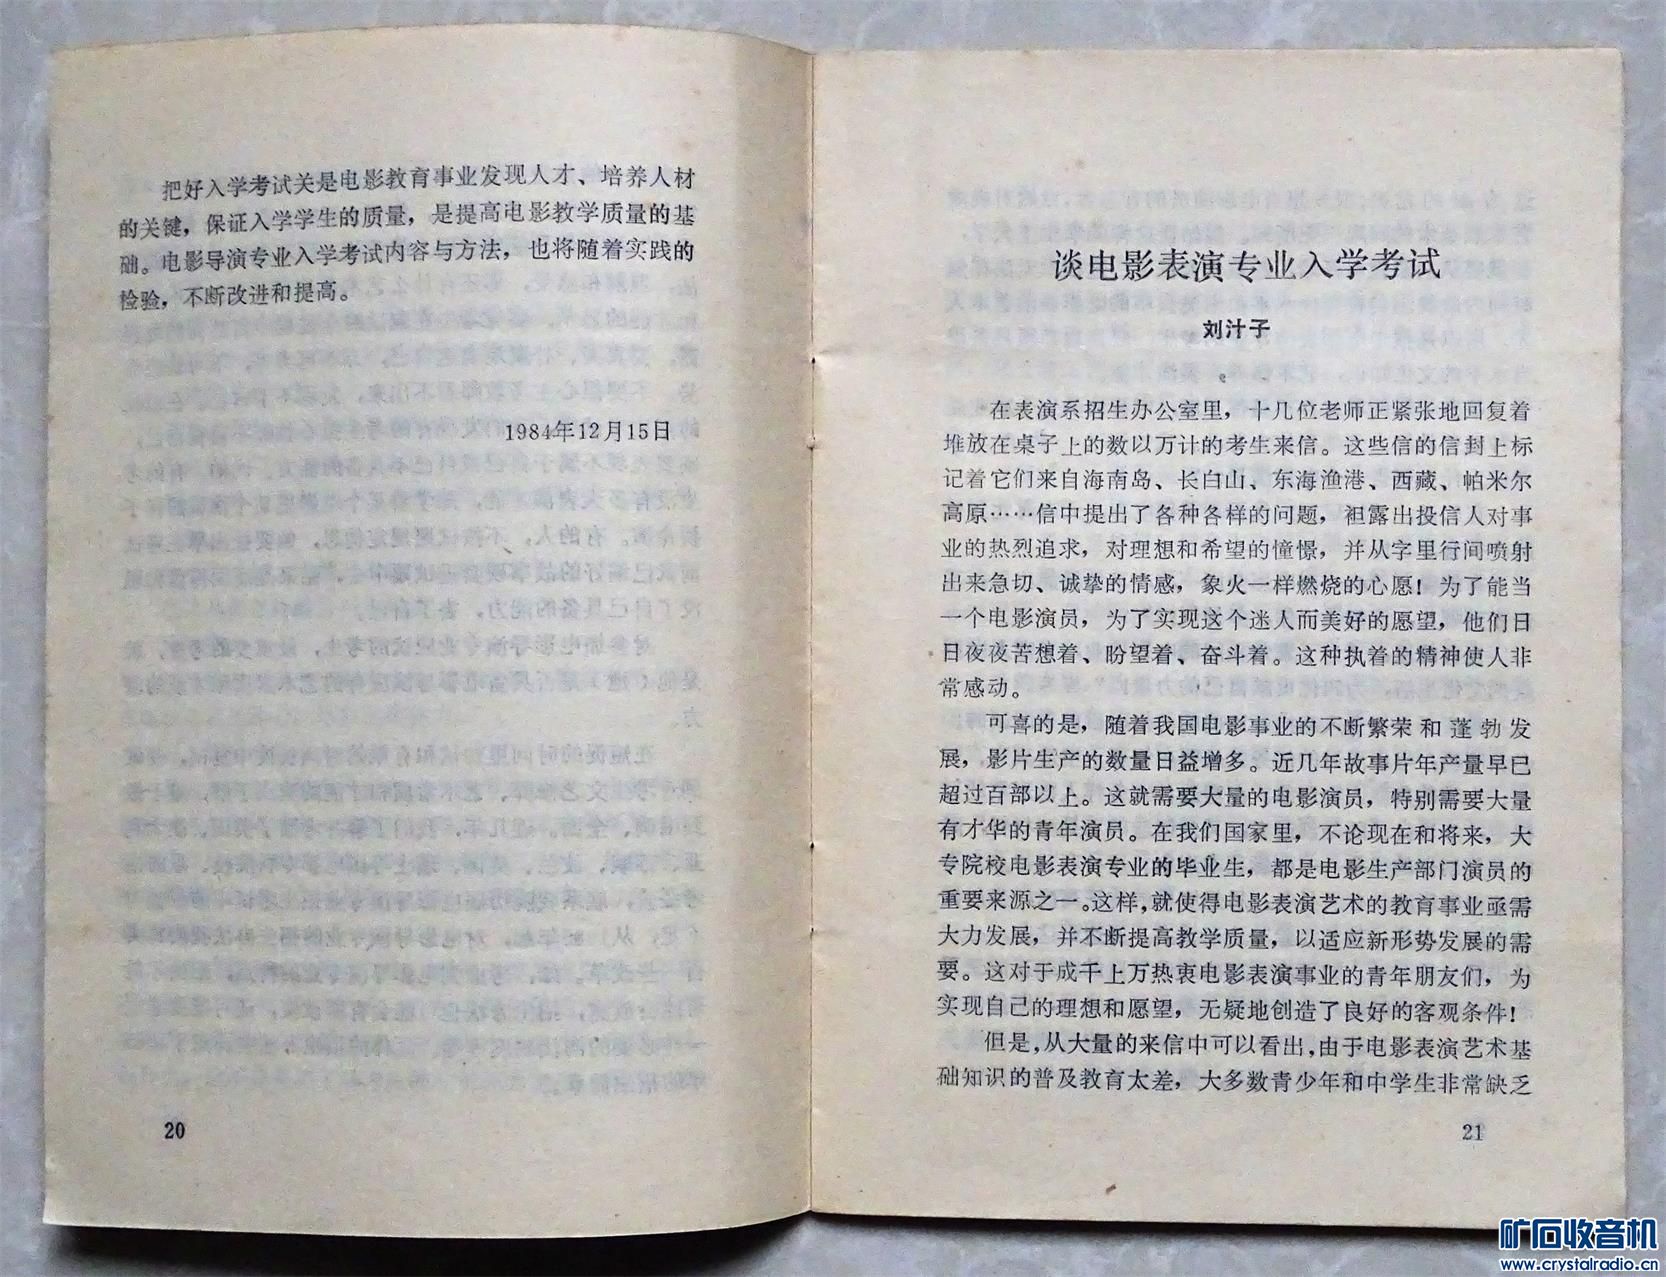 把好入学考试关是电影教育事业发现人才、培养人材
的关键，保证入学学生的质量，是提高电影教学质量的基
础。电影导演专业入学考试内容与方法，也将随着实践的
检验，不断改进和提高。
1984年12月15日
20
谈电影表演专业入学考试
刘汁子
在表演系招生办公室里，十几位老师正紧张地回复着
堆放在桌子上的数以万计的考生来信。这些信的信封上标
记着它们来自海南岛、长白山、东海渔港、西藏、帕米尔
高原……信中提出了各种各样的问题，袒露出投信人对事
业的热烈追求，对理想和希望的憧憬，并从字里行间喷射
出来急切、诚挚的情感，象火一样燃烧的心愿！为了能当
一个电影演员，为了实现这个迷人而美好的愿望，他们日
日夜夜苦想着、盼望着、奋斗着。这种执着的精神使人非
常感动。
可喜的是，随着我国电影事业的不断繁荣和蓬勃发
展，影片生产的数量日益增多。近几年故事片年产量早已
超过百部以上。这就需要大量的电影演员，特别需要大量
有才华的青年演员。在我们国家里，不论现在和将来，大
专院校电影表演专业的毕业生，都是电影生产部门演员的
重要来源之一。这样，就使得电影表演艺术的教育事业亟需
大力发展，并不断提高教学质量，以适应新形势发展的需
要。这对于成千上万热衷电影表演事业的青年朋友们，为
实现自己的理想和愿望，无疑地创造了良好的客观条件！
但是，从大量的来信中可以看出，由于电影表演艺术基
础知识的普及教育太差，大多数青少年和中学生非常缺乏
21
矿石收音机
www.crystalradio.cn